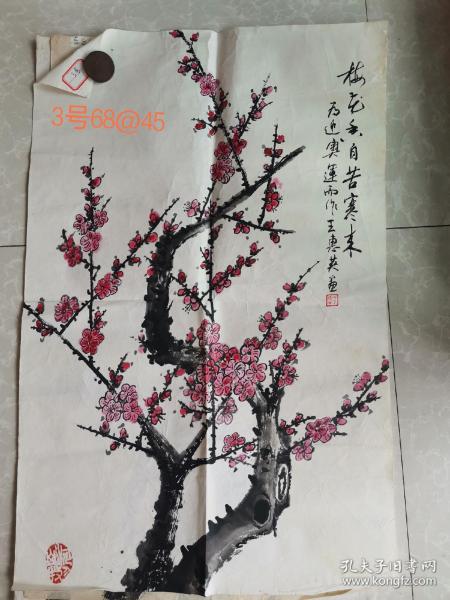 梅花香自苦寒来
为迎奥运而作王惠英画
3号68@45
孔夫子旧书网
www.kongfz.com